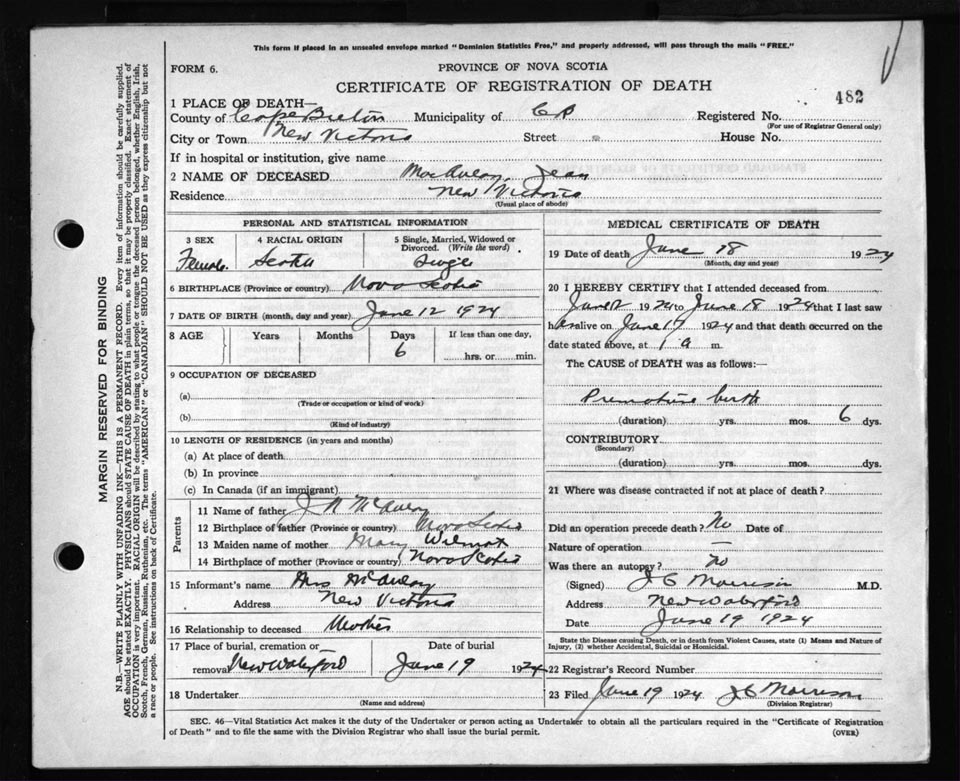 This form if placed in an unsealed envelope marked "Dominion Statistics Free," and properly addressed, will pass through the mails "FREE."
FORM 6.
PROVINCE OF NOVA SCOTIA
CERTIFICATE OF REGISTRATION OF DEATH
482
1 PLACE OF DEATH—
County of Cape Breton Municipality of C B Registered No.
(For use of Registrar General only)
City or Town New Victoria Street House No.
If in hospital or institution, give name
2 NAME OF DECEASED MacAulay, Jean
Residence New Victoria
(Usual place of abode)
PERSONAL AND STATISTICAL INFORMATION
3 SEX 4 RACIAL ORIGIN 5 Single, Married, Widowed or Divorced. (Write the word)
Female Scotch Single
6 BIRTHPLACE (Province or country) Nova Scotia
7 DATE OF BIRTH (month, day and year) June 12 1924
8 AGE Years Months Days If less than one day,
6 hrs. or min.
9 OCCUPATION OF DECEASED
(a)
(Trade or occupation or kind of work)
(b)
(Kind of industry)
10 LENGTH OF RESIDENCE (in years and months)
(a) At place of death
(b) In province
(c) In Canada (if an immigrant)
Parents
11 Name of father J N McAulay
12 Birthplace of father (Province or country) Nova Scotia
13 Maiden name of mother Mary Wilmot
14 Birthplace of mother (Province or country) Nova Scotia
15 Informant's name Mrs McAulay
Address New Victoria
16 Relationship to deceased Mother
17 Place of burial, cremation or removal New Waterford
Date of burial June 19 1924
18 Undertaker
(Name and address)
MEDICAL CERTIFICATE OF DEATH
19 Date of death June 18 1924
(Month, day and year)
20 I HEREBY CERTIFY that I attended deceased from
June 12 1924 to June 18 1924 that I last saw
h er alive on June 17 1924 and that death occurred on
date stated above, at 1 a m.
The CAUSE of DEATH was as follows:—
Premature birth
(duration) yrs. mos. 6 dys.
CONTRIBUTORY
(Secondary)
(duration) yrs. mos. dys.
21 Where was disease contracted if not at place of death?
Did an operation precede death? No Date of
Nature of operation —
Was there an autopsy? No
(Signed) J C Morrison M.D.
Address New Waterford
Date June 19 1924
State the Disease causing Death, or in death from Violent Causes, state (1) Means and Nature of
Injury, (2) whether Accidental, Suicidal or Homicidal.
22 Registrar's Record Number
23 Filed June 19 1924 J C Morrison
(Division Registrar)
SEC. 46—Vital Statistics Act makes it the duty of the Undertaker or person acting as Undertaker to obtain all the particulars required in the "Certificate of Registration
of Death" and to file the same with the Division Registrar who shall issue the burial permit.
(OVER)
MARGIN RESERVED FOR BINDING
N.B.—WRITE PLAINLY WITH UNFADING INK—THIS IS A PERMANENT RECORD. Every item of information should be carefully supplied.
AGE should be stated EXACTLY. PHYSICIANS should STATE CAUSE OF DEATH in plain terms, so that it may be properly classified. Exact statement of
OCCUPATION is very important. RACIAL ORIGIN will be described by stating to what people or tongue the deceased person belonged, whether English, Irish,
Scotch, French, German, Russian, Ruthenian, etc. The terms "AMERICAN" or "CANADIAN" SHOULD NOT BE USED as they express citizenship but not
a race or people. See instructions on back of Certificate.